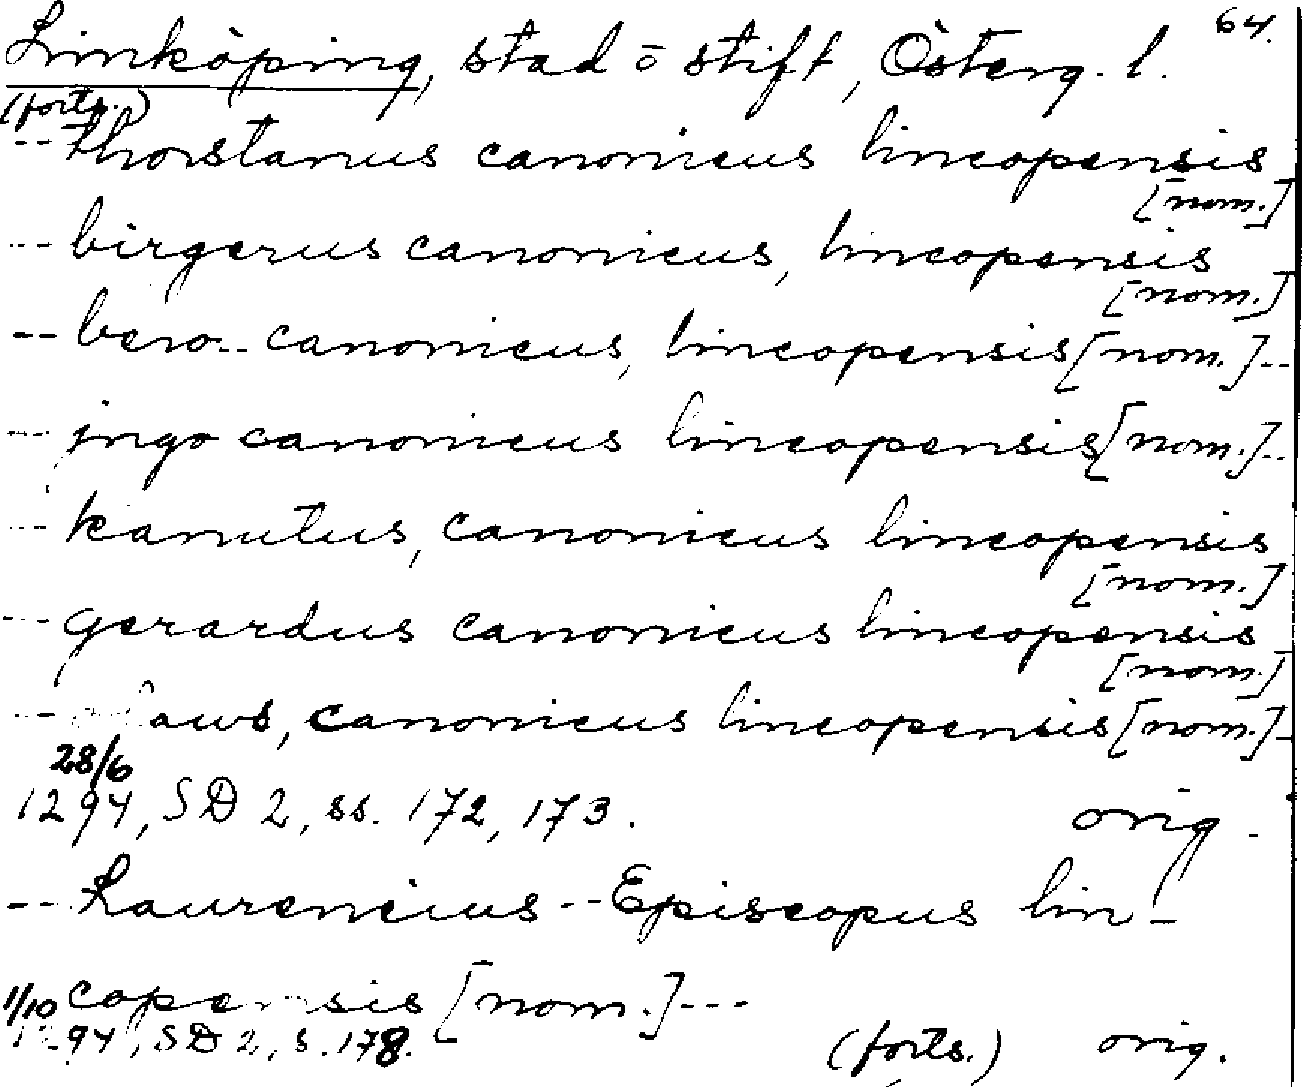 64.
Linköping, stad o stift, Österg. l.
(forts.)
-- thorstanus canonicus lincopensis
[nom.]
--- birgerus canonicus, lincopensis
[nom.]
-- bero -- canonicus, lincopensis [nom.] --
--- jngo canonicus lincopensis [nom.] --
--- kanutus, canonicus lincopensis
[nom.]
--- gerardus canonicus lincopensis
[nom.]
--- canonicus lincopensis [nom.] -
28/6
1294, SD 2, ss. 172, 173. orig.
-- Laurencius -- Episcopus lin-
copensis [nom.] ---
1/10
1294, SD 2, s. 178. (forts.) orig.